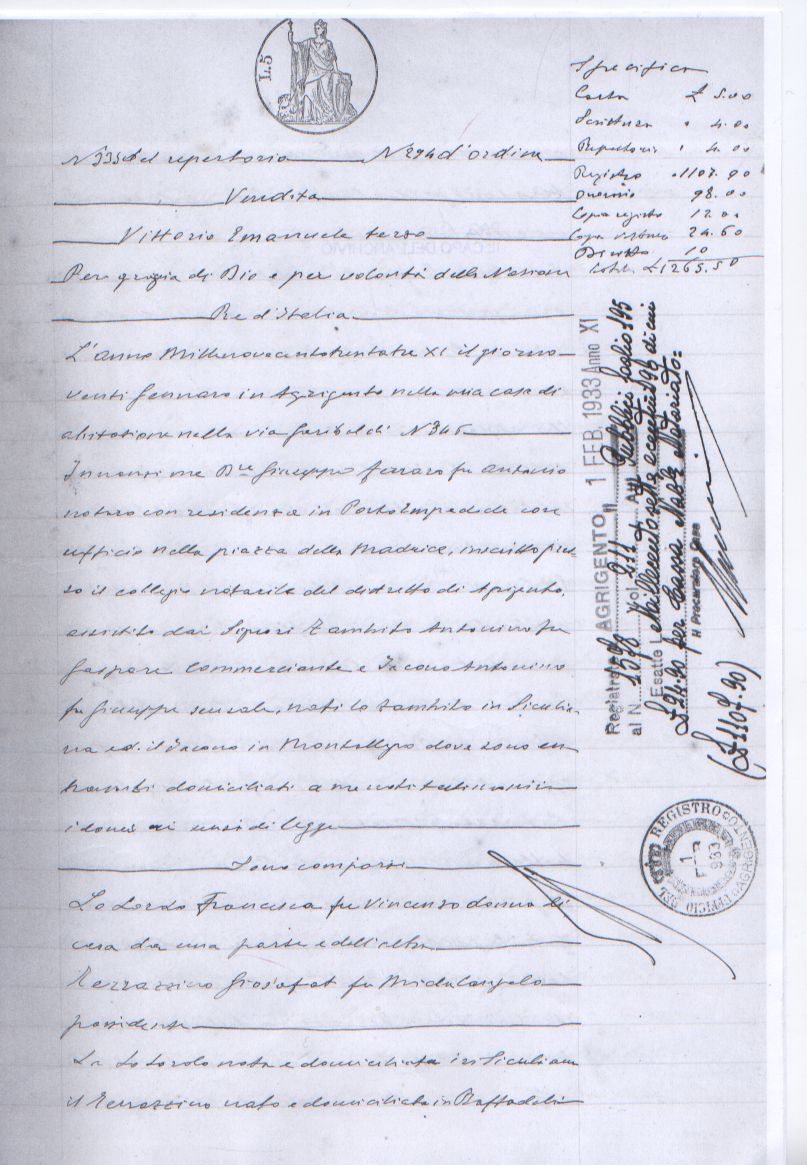 L.5
N 335 del repertorio N 294 d'ordine
Vendita
Vittorio Emanuele terzo
Per grazia di Dio e per volontà della Nazione
Re d'Italia
L'anno Millenovecentotrentatre XI il giorno
venti Gennaro in Agrigento nella mia casa di
abitazione nella via Garibaldi N 345
Innanzi me Dre Giuseppe Ferraro fu Antonio
notaro con residenza in Porto Empedocle con
ufficio nella piazza della Madrice, inscritto pres
so il collegio notarile del distretto di Agrigento,
assistito dai Signori Zambito Antonino fu
Gaspare Commerciante e Iacono Antonino
fu Giuseppe sensale, nati lo Zambito in Siculia
na ed il Iacono in Montallegro dove sono en
trambi domiciliati a me noti testimonii
idonei ai sensi di legge
Sono comparsi
Lo Lordo Francesca fu Vincenzo donna di
casa da una parte e dell'altra
Terrazzino Giosafat fu Michelangelo
possidente
La Lo Lordo nata e domiciliata in Siculiana
il Terrazzino nato e domiciliato in Raffadali
Specifica
Carta £ 5.00
Scrittura " 4.00
Repertorio " 4.00
Registro " 1107.90
98.00
Copia registro 12.00
Copia 24.60
10
Totale £ 1265.50
Registrato AGRIGENTO Il 1 FEB. 1933 Anno XI
al N. 1598 Vol. 211 Atti Pubblici foglio 195
Esatte L.
£ 24.90 per Cassa Naz. Notariato=
Il Procuratore Capo
(£ 1107.90)
UFFICIO DEL REGISTRO AGRIGENTO
1
FEB
933